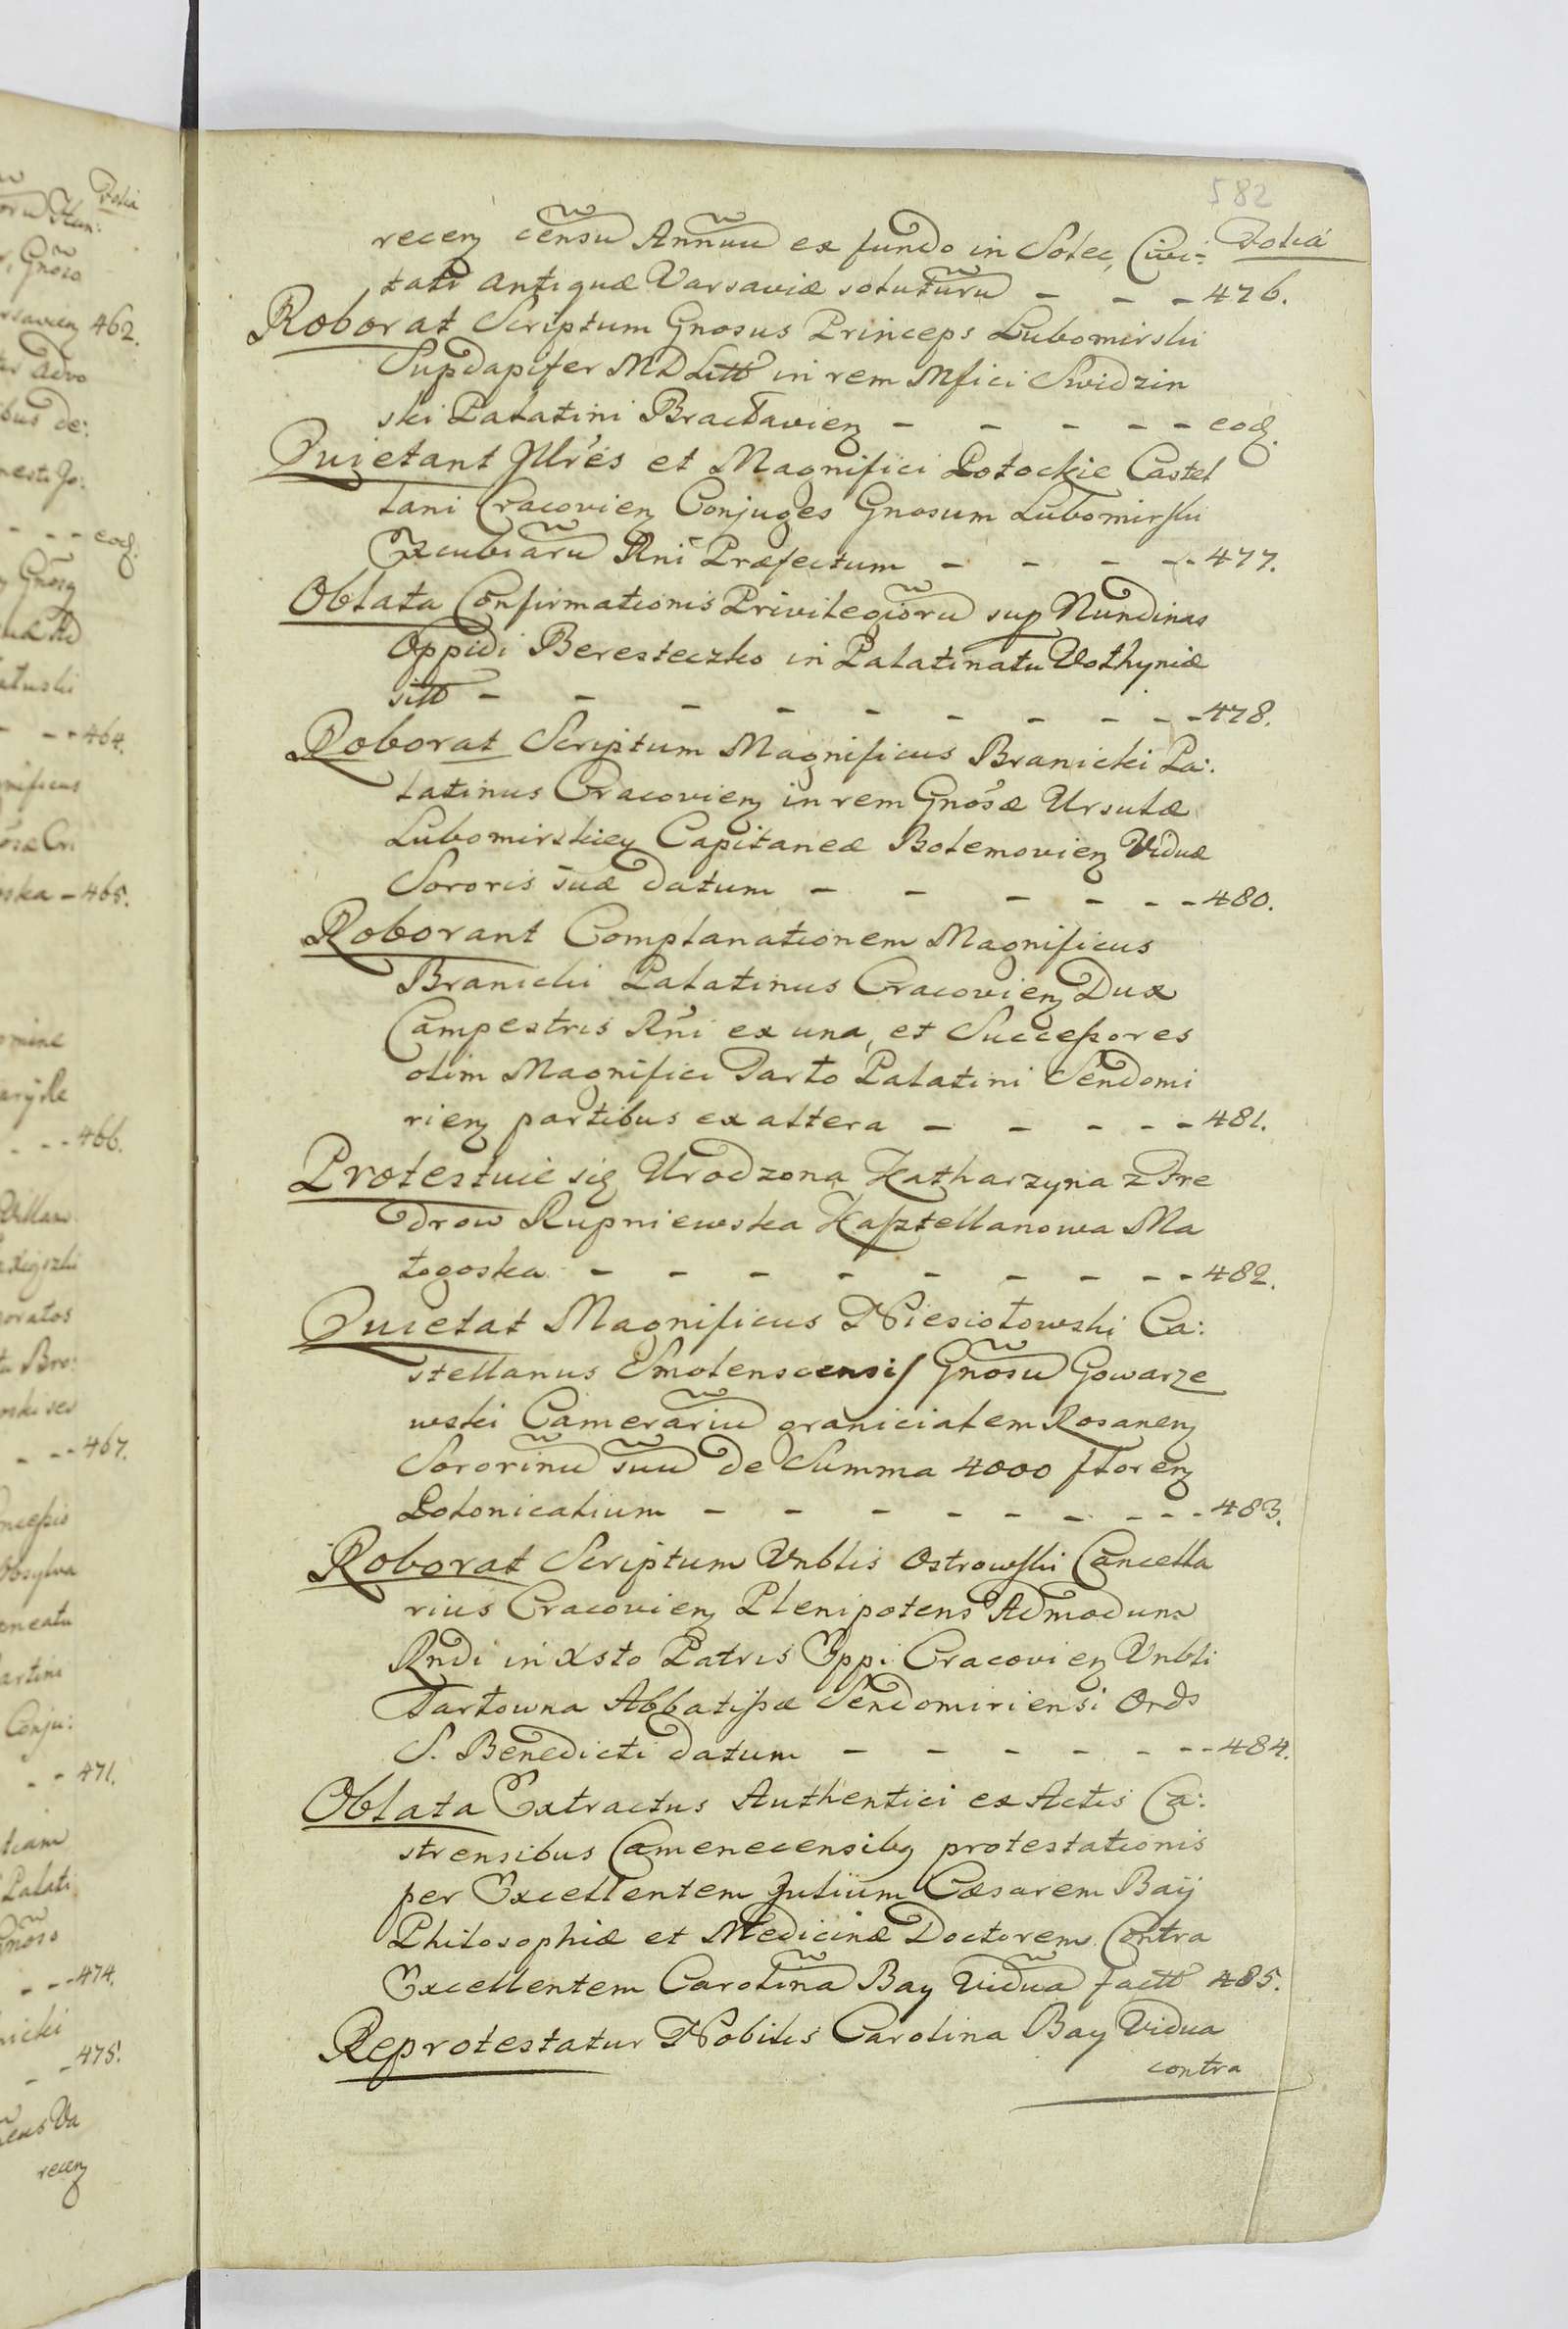 582
Folia
recen censu Annuu ex fundo in Solec, Civi:
tati antiquæ Varsaviæ soluturu - - - 476.
Roborat Scriptum Gnosus Princeps Lubomirski
Supdapifer MDLitt in rem Mfici Swidzin
ski Palatini Bracłavien - - - - - eod.
Quietant Jllres et Magnifici Potockie Castel
lani Cracovien Conjuges Gnosum Lubomirski
Excubiaru Rni Præfectum - - - - - 477.
Oblata Confirmationis Privilegioru sup Nundinas
Oppidi Beresteczko in Palatinatu Volhyniæ
sitt - - - - - - - - - - 478.
Roborat Scriptum Magnificus Branicki Pa:
latinus Cracovien in rem Gnosæ Ursulæ
Lubomirskiey Capitaneæ Bolemovien Viduæ
Sororis suæ datum - - - - - - 480.
Roborant Complanationem Magnificus
Branicki Palatinus Cracovien Dux
Campestris Rni ex una, et Successores
olim Magnifici Tarło Palatini Sendomi
rien partibus ex altera - - - - - 481.
Protestuie się Urodzona Katharzyna z Fre
drow Rupniewska Kasztellanowa Ma
łogoska - - - - - - - - - 482.
Quietat Magnificus Niesiołowski Ca:
stellanus Smolenscensis Gnosu Gowarze
wski Camerariu graniciatem Rosanen
Sororinu suu de Summa 4000 floren
Polonicalium - - - - - - - - - 483.
Roborat Scriptum Vnblis Ostrowski Cancella
rius Cracovien Plenipotens Admodum
Rndi in Xsto Patris Eppi Cracovien Vnbli
Tarłowna Abbatissæ Sendomiriensi Ords
S. Benedicti datum - - - - - - - 484.
Oblata Extractus Authentici ex Actis Ca:
strensibus Camenecensibq protestationis
per Excellentem Julium Cæsarem Baij
Philosophiæ et Medicinæ Doctorem Contra
Excellentem Carolina Bay Vidua factt 485.
Reprotestatur Nobilis Carolina Bay Vidua
contra